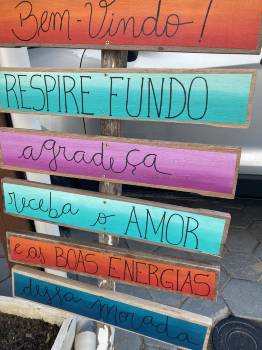 Bem-Vindo!
RESPIRE FUNDO
agradeça
receba o AMOR
e as BOAS ENERGIAS
dessa morada